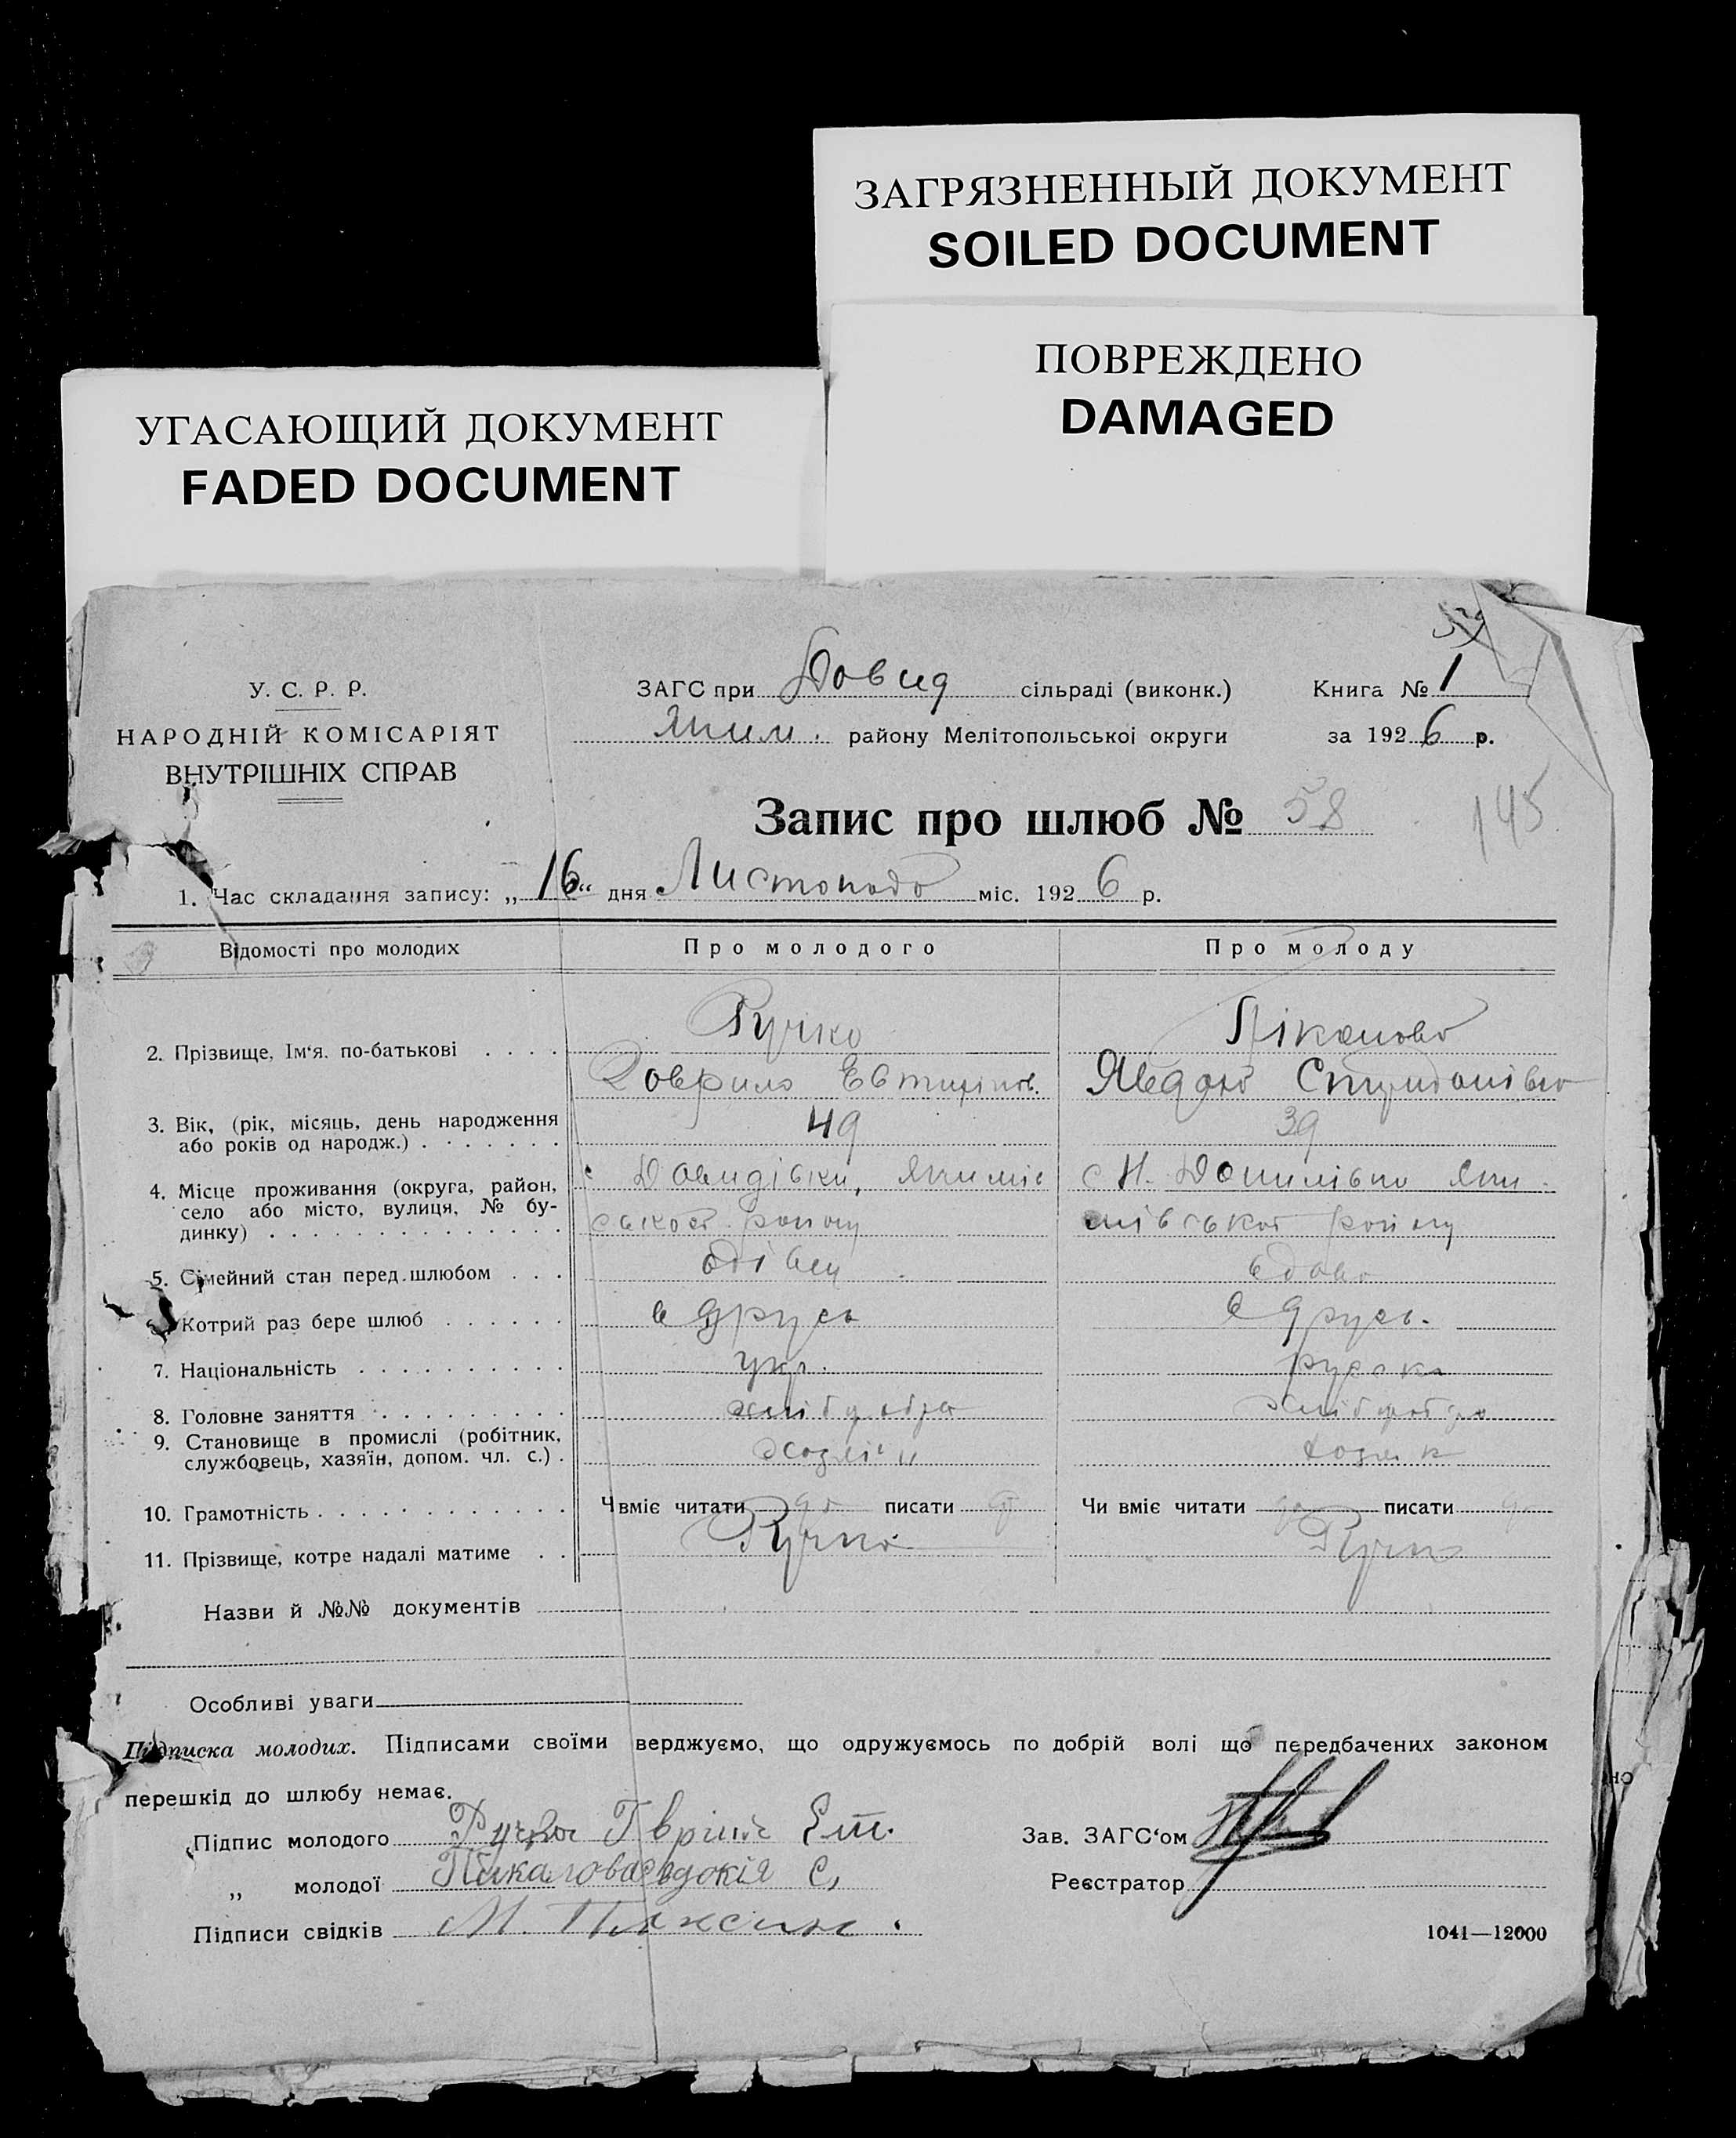 ЗАГРЯЗНЕННЫЙ ДОКУМЕНТ
SOILED DOCUMENT
ПОВРЕЖДЕНО
DAMAGED
УГАСАЮЩИЙ ДОКУМЕНТ
FADED DOCUMENT
У. С. Р. Р.
НАРОДНІЙ КОМІСАРІЯТ
ВНУТРІШНІХ СПРАВ
ЗАГС при Довид сільраді (виконк.) Книга № 1
Яким. району Мелітопольської округи за 1926 р.
Запис про шлюб № 58
145
1. Час складання запису: „16“ дня Листопада міс. 1926 р.
Відомості про молодих Про молодого Про молоду
2. Прізвище, Ім‘я, по-батькові
Ручко
Гаврило
Явдоха
3. Вік, (рік, місяць, день народження
або років од народж.)
49 39
4. Місце проживання (округа, район,
село або місто, вулиця, № бу-
динку)
с Давидівки, Якимів
ської району
с Н. Данилівка Яки-
мівської району
5. Сімейний стан перед шлюбом
вдівец вдова
Котрий раз бере шлюб
в друге в друге.
7. Національність укр. руска
8. Головне заняття хлібороб
9. Становище в промислі (робітник,
службовець, хазяїн, допом. чл. с.)
10. Грамотність Ч вміє читати до писати Чи вміє читати писати
11. Прізвище, котре надалі матиме Ручко Ручко
Назви й №№ документів
Особливі уваги
Підписка молодих. Підписами своїми верджуємо, що одружуємось по добрій волі що передбачених законом
перешкід до шлюбу немає.
Підпис молодого Ручко Зав. ЗАГС‘ом
„ молодої Пикалова евдокія С, Реєстратор
Підписи свідків М.
1041—12000